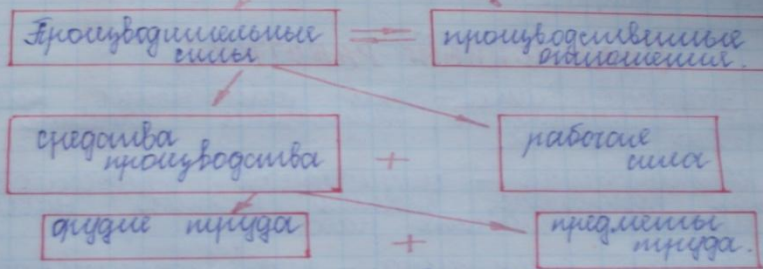 Производительные
силы
производственные
отношения.
средства
производства
+
рабочая
сила
орудие труда
+
предметы
труда.